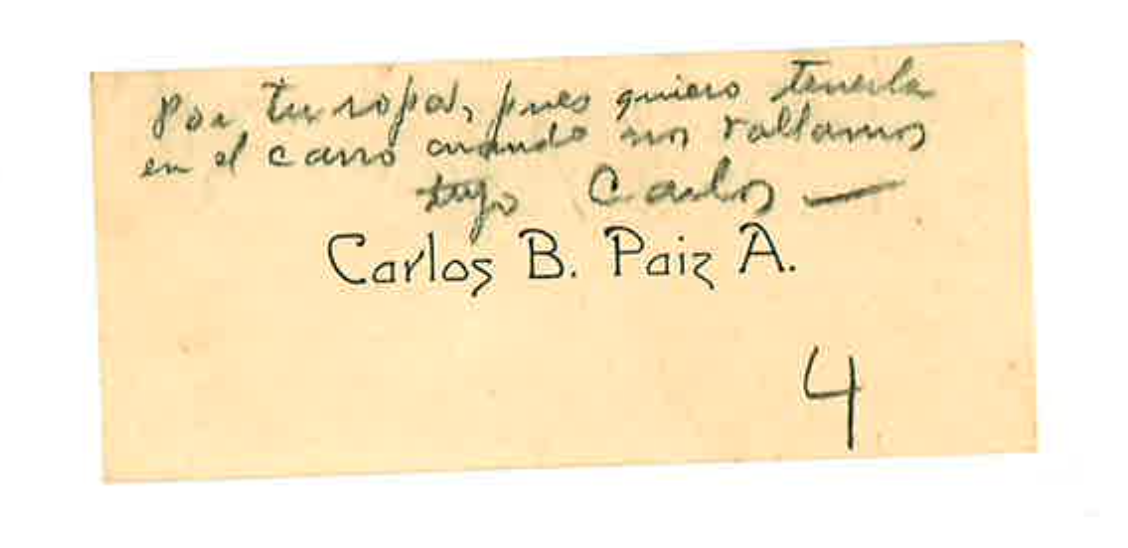 Por tu ropa, pues quiero tenerla
en el carro cuando nos vallamos
tuyo Carlos —
Carlos B. Paiz A.
4